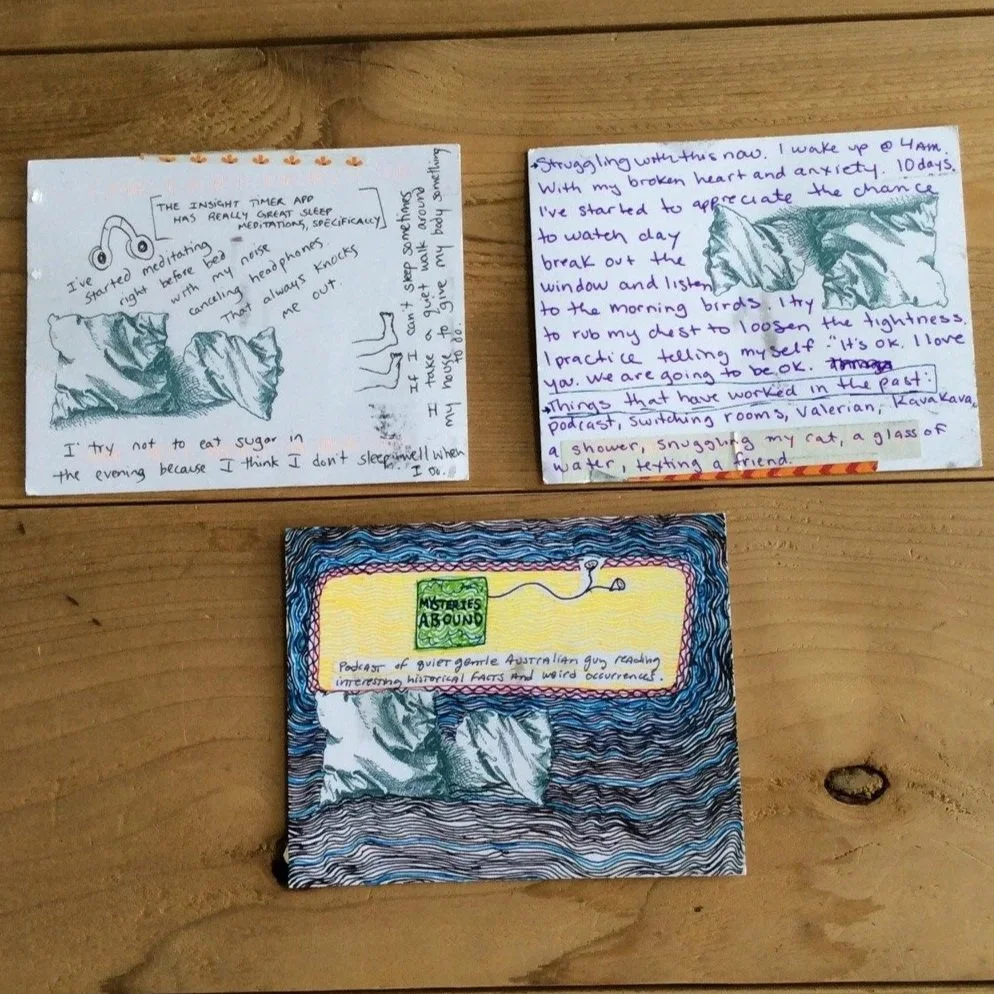 THE INSIGHT TIMER APP
HAS REALLY GREAT SLEEP
MEDITATIONS, SPECIFICALLY
I've started meditating
right before bed
with my noise
canceling headphones.
That always knocks
me out.
If I can't sleep sometimes
I take a quiet walk around
my house to give my body something
to do.
I try not to eat sugar in
the evening because I think I don't sleep well when
I do.
Struggling with this now. I wake up @ 4AM.
With my broken heart and anxiety. 10 days.
I've started to appreciate the chance
to watch day
break out the
window and listen
to the morning birds. I try
to rub my chest to loosen the tightness.
I practice telling myself: "It's ok. I love
you. We are going to be ok.
Things that have worked in the past:
podcast, switching rooms, valerian, Kava Kava,
a shower, snuggling my cat, a glass of
water, texting a friend.
MYSTERIES
ABOUND
Podcast of quiet gentle Australian guy reading
interesting historical facts and weird occurrences.